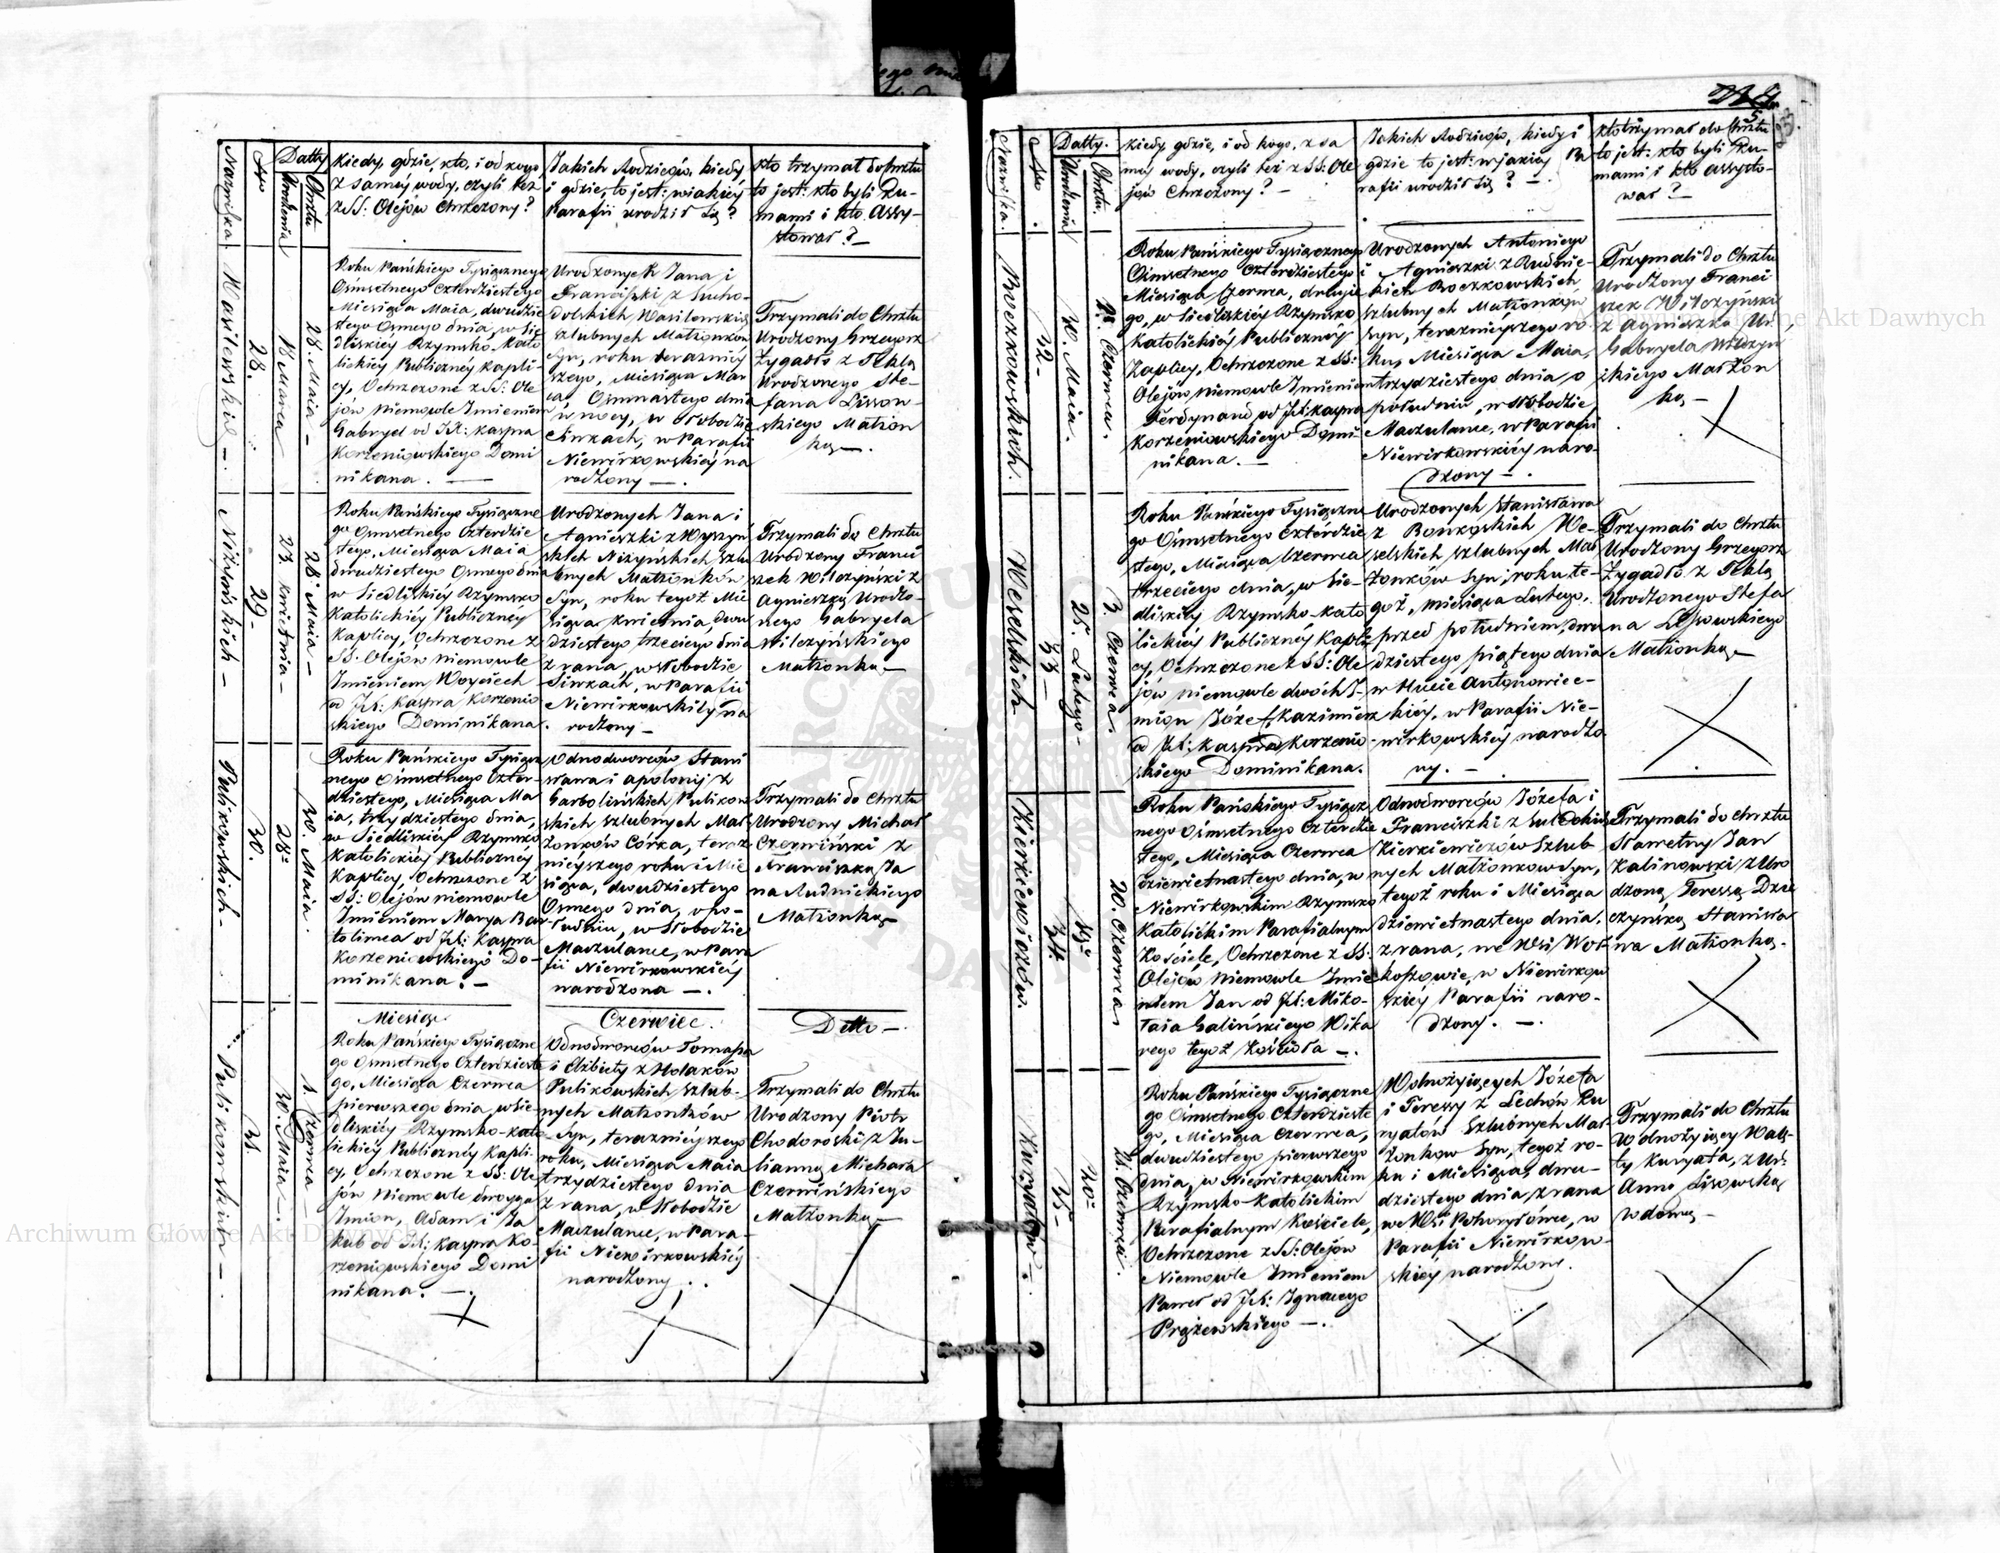 Nazwiska
No
Datty
Urodzenia
Chrztu
Kiedy, gdzie, kto, i od kogo,
z samey wody, czyli też
z SS: Olejów Chrzczony?
Jakich Rodziców, kiedy,
i gdzie, to jest: w iakiey
Parafii urodził się?
Kto trzymał do Chrztu
to jest: kto byli Ku-
mami i kto Assy-
stował? —
Wasilewskich —
28.
18 Marca
28. Maia —
Roku Pańskiego Tysiącznego
Ośmsetnego Czterdziestego
Miesiąca Maia, dwudzie-
stego Osmego dnia, w Sie-
dliskiey Rzymsko-Kato-
lickiey Publiczney Kapli-
cy, Ochrzczone z SS: Ole-
jów Niemowle Imieniem
Gabryel od JX: Kaspra
Korzeniowskiego Domi-
nikana. —
Urodzonych Jana i
Franciszki z Sucho-
dolskich Wasilewskich
szlubnych Małżonków
Syn, roku teraźniey-
szego, Miesiąca Mar-
ca, Osmnastego dnia
w nocy, w Słobodzie
Siwkach, w Parafii
Niewirkowskiey na-
rodzony —.
Trzymali do Chrztu
Urodzony Grzegorz
Zygadło z Teklą
Urodzonego Ste-
fana Lissow-
skiego Małżon-
ką —.
Niżyńskich —
29 —
23. Kwietnia —
28. Maia —
Roku Pańskiego Tysiączne-
go Ośmsetnego Czterdzie-
stego, Miesiąca Maia
dwudziestego Osmego dnia
w Siedliskiey Rzymsko
Katolickiey Publiczney
Kaplicy, Ochrzczone z
SS. Olejów Niemowle
Imieniem Woyciech
od JX: Kaspra Korzenio-
skiego Dominikana.
Urodzonych Jana i
Agnieszki z Wyszyń-
skich Niżyńskich szlu-
bnych Małżonków
Syn, roku tegoż Mie-
siąca Kwietnia, dwu-
dziestego trzeciego dnia
z rana, w Słobodzie
Siwkach, w Parafii
Niewirkowskiey na-
rodzony —
Trzymali do Chrztu
Urodzony Franci-
szek Wilczyński z
Agnieszką Urodzo-
nego Gabryela
Wilczyńskiego
Małżonką —
Pulikowskich —
30.
28
30. Maia —
Roku Pańskiego Tysiącz-
nego Ośmsetnego Czter-
dziestego, Miesiąca Ma-
ia, trzydziestego dnia,
w Siedliskiey Rzymsko
Katolickiey Publiczney
Kaplicy, Ochrzczone z
SS: Olejów niemowle
Imieniem Marya Bar-
tolimea od JX: Kaspra
Korzeniowskiego Do-
minikana. —
Odnodworców Stani-
sława i Apolonij z
Garbolińskich Pulikow-
skich szlubnych Mał-
żonków Córka, teraz-
nieyszego roku i Mie-
siąca, dwudziestego
Osmego dnia, o po-
łudniu, w Słobodzie
Maczulance, w Para-
fii Niewirkowskiey
narodzona —.
Trzymali do Chrztu
Urodzony Michał
Czerwiński z
Franciszką Ja-
na Rudnickiego
Małżonką —
Miesiąc
Czerwiec.
Detto —
Pulikowskich —
31.
30. Maia —
1. Czerwca —
Roku Pańskiego Tysiączne-
go Ośmsetnego Czterdzieste-
go, Miesiąca Czerwca
pierwszego dnia, w Sie-
dliskiey Rzymsko-Kato-
lickiey Publiczney Kapli-
cy, Ochrzczone z SS: Ole-
jów Niemowle dwoyga
Imion, Adam i Ja-
kub od JX: Kaspra Ko-
rzeniowskiego Domi-
nikana. —.
Odnodworców Tomasza
i Elżbiety z Polaków
Pulikowskich szlub-
nych Małżonków
Syn, teraznieyszego
roku, Miesiąca Maia
trzydziestego dnia
z rana, w Słobodzie
Maczulance, w Para-
fii Niewirkowskiey
narodzony.
Trzymali do Chrztu
Urodzony Piotr
Chodoroski z Ju-
lianną Michała
Czerwińskiego
Małżonką —
5
Nazwiska.
No
Datty.
Urodzenia
Chrztu.
Kiedy gdzie, i od kogo, z sa-
mey wody, czyli też z SS: Ole-
jów Chrzczony? —
Jakich Rodziców, kiedy i
gdzie to jest: w jakiey Pa-
rafii urodził się? —
Kto trzymał do Chrztu
to jest: kto byli Ku-
mami i kto Assysto-
wał? —
Boczkowskich.
32 —
30. Maia.
2. Czerwca.
Roku Pańskiego Tysiącznego
Ośmsetnego Czterdziestego
Miesiąca Czerwca, drugie-
go, w Siedliskiey Rzymsko
Katolickiey Publiczney
Kaplicy, Ochrzczone z SS:
Olejów Niemowle Imieniem
Ferdynand od JX: Kaspra
Korzeniowskiego Domi-
nikana. —
Urodzonych Antoniego
i Agnieszki z Rudnic-
kich Boczkowskich
szlubnych Małżonków
Syn, teraznieyszego ro-
ku, Miesiąca Maia,
trzydziestego dnia, o
południu, w Słobodzie
Maczulance, w Parafii
Niewirkowskiey naro-
dzony —.
Trzymali do Chrztu
Urodzony Franci-
szek Wilczyński
z Agnieszką Ur:
Gabryela Wilczyń-
skiego Małżon-
ką. —
Weselskich
33 —
25. Lutego —
3. Czerwca.
Roku Pańskiego Tysiączne-
go Ośmsetnego Czterdzie-
stego, Miesiąca Czerwca
trzeciego dnia, w Sie-
dliskiey Rzymsko-Kato-
lickiey Publiczney Kapli-
cy, Ochrzczone z SS: Ole-
jów Niemowle dwóch I-
mion Józef, Kazimierz
od JX: Kaspra Korzenio-
skiego Dominikana.
Urodzonych Stanisława
z Bonkoskich We-
selskich szlubnych Mał-
żonków Syn, roku te-
goż, Miesiąca Lutego,
przed południem, dwu-
dziestego piątego dnia
w Hucie Antonowiec-
kiey, w Parafii Nie-
wirkowskiey narodzo-
ny. —
Trzymali do Chrztu
Urodzony Grzegorz
Zygadło z Teklą
Urodzonego Stefa-
na Lissowskiego
Małżonką —
Kierkiewiczów.
34.
19
20. Czerwca
Roku Pańskiego Tysiącz-
nego Ośmsetnego Czterdzie-
stego, Miesiąca Czerwca
dziewietnastego dnia, w
Niewirkowskim Rzymsko
Katolickim Parafialnym
Kościele, Ochrzczone z SS:
Olejów Niemowle Imie-
niem Jan od JX: Miko-
łaia Galińskiego Wika-
rego tegoż Kościoła —.
Odnodworców Józefa i
Franciszki z
Kierkiewiczów Szlub-
nych Małżonkow Syn,
tegoż roku i Miesiąca
dziewietnastego dnia,
z rana, we Wsi Woł-
koszowie, w Niewirkow-
skiey Parafii naro-
dzony. —.
Trzymali do Chrztu
Sławetny Jan
Kalinowski z Uro-
dzoną Teressą Dzie-
czyńską Stanisła-
wa Małżonką.
Kuryatów —.
35 —
20
21. Czerwca.
Roku Pańskiego Tysiączne-
go Ośmsetnego Czterdzieste-
go, Miesiąca Czerwca,
dwudziestego pierwszego
dnia, w Niewirkowskim
Rzymsko-Katolickim
Parafialnym Kościele,
Ochrzczone z SS: Olejów
Niemowle Imieniem
Paweł od JX: Ignacego
Prążewskiego —.
Wolnożyiących Józefa
i Teressy z Lechów Ku-
ryatów Szlubnych Mał-
żonkow Syn, tegoż ro-
ku i Miesiąca, dwu-
dziestego dnia, z rana
we Wsi Pohorylówce, w
Parafii Niewirkow-
skiey narodzony.
Trzymali do Chrztu
Wolnożyiący Wale-
ty Kuryata, z Ur:
Anną Lisowską
wdową —
Archiwum Główne Akt Dawnych
Archiwum Główne Akt Dawnych